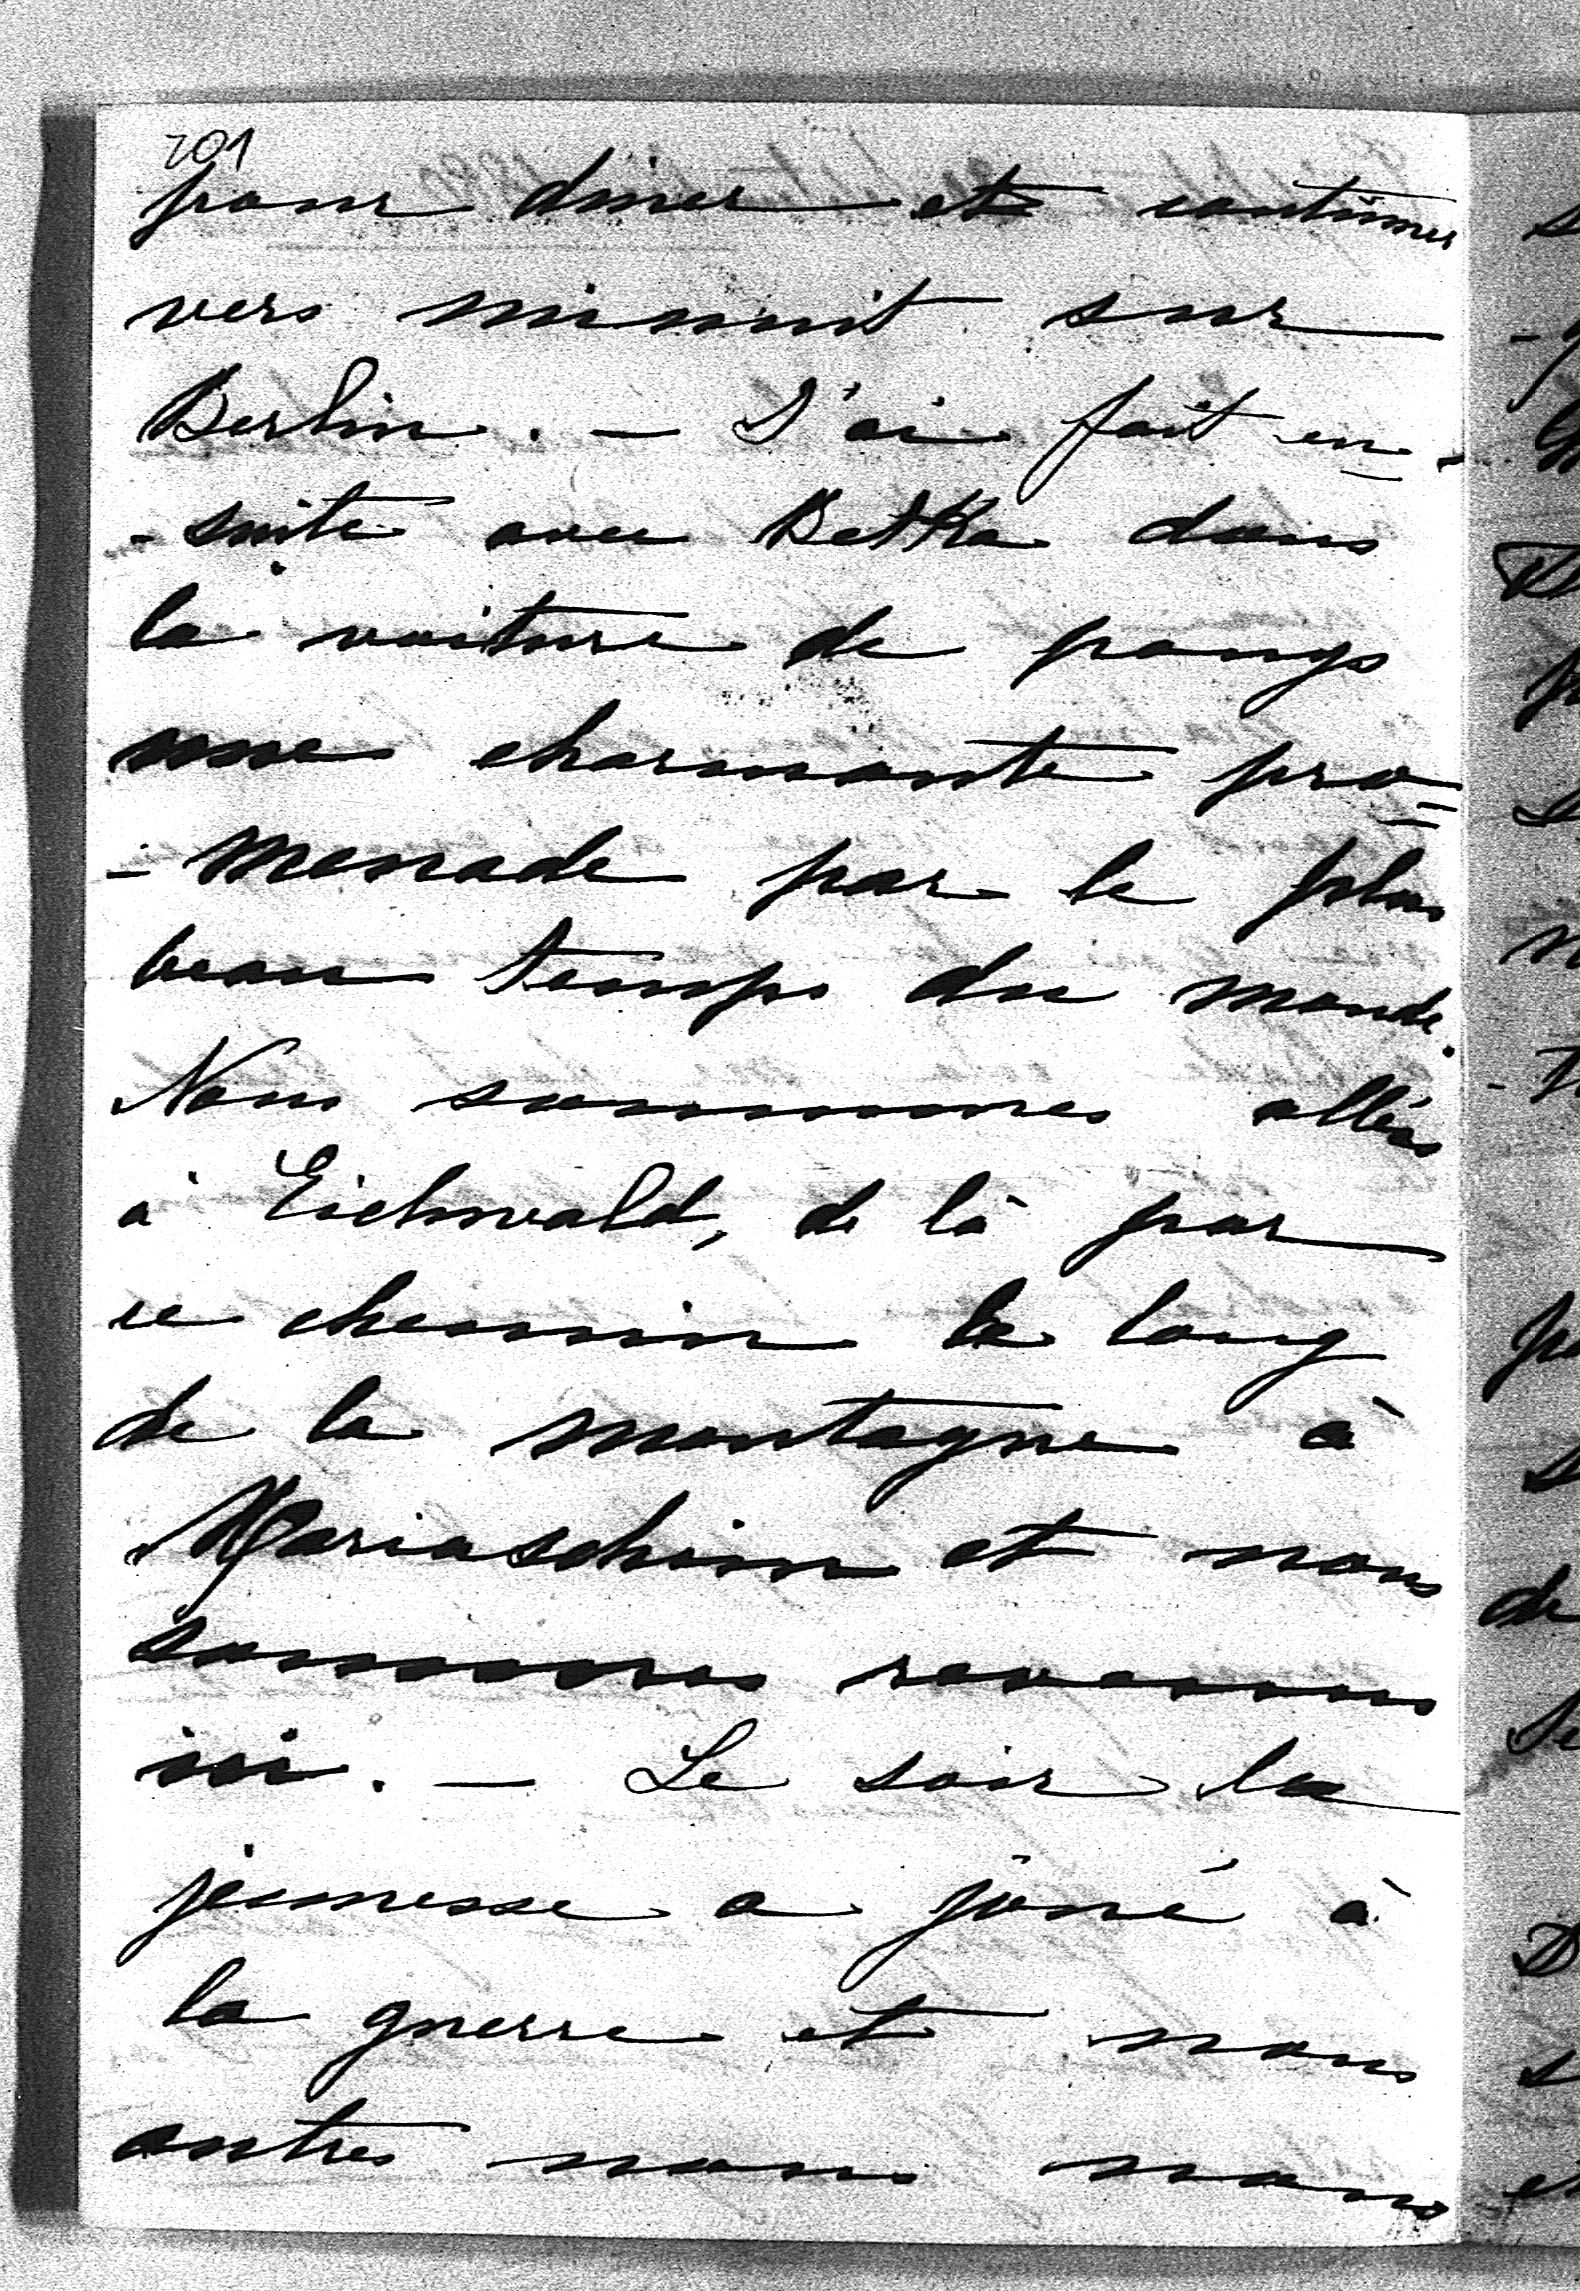 201
pour diner et continuer
vers minuit sur
Berlin. — J'ai fait en-
-suite avec Betka dans
la voiture de ponys
une charmante pro=
=menade par le plus
beau temps du monde.
Nous sommes allés
à Eichwald, de là par
ce chemin le long
de la montagne à
Mariaschein et nous
sommes revenus
ici. — Le soir la
jeunesse a joué à
la guerre et nous
autres nous nous